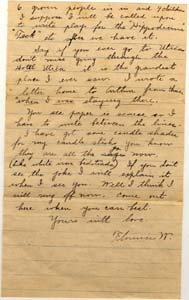 6 grown people in and 7 children
I suppose I will be called upon
to make play for the "Hypodermic
Tack" the after we have left.
Say if you ever go to Utica
don't miss going through the
Hotel Utica it is the grandest
place I ever saw. I wrote a
letter home to Arthur from there
when I was staying there.
You see paper is scarce so I
have to write between the lines.
I have got some candle shades
for my candle sticks you know
they are all the now
(like white iron bedsteads) If you don't
see the joke I will explain it
when I see you. Well I think I
will ring off now. Come out
here when you can best.
Yours with love
Florence W.